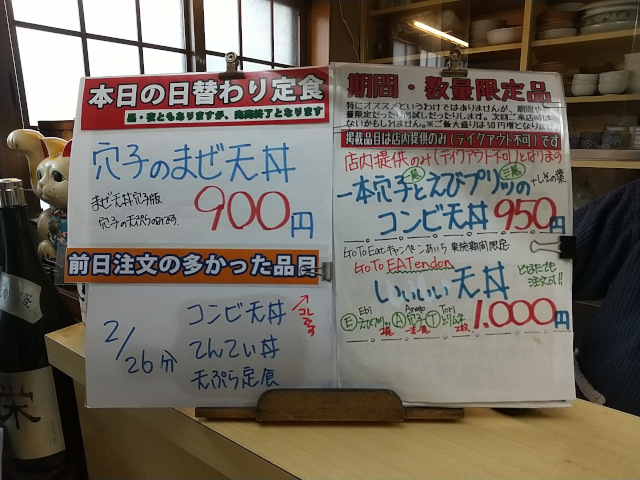 本日の日替わり定食
昼・夜ともありますが、売切終了となります
穴子のまぜ天丼
まぜ天丼穴子版
穴子の天ぷらのみです。
900円
前日注文の多かった品目
2/26分
コンビ天丼
コレです
てんてい丼
天ぷら定食
期間・数量限定品
特にオススメというわけではありませんが、期間や
量限定だったりお試しだったりします。次回ご来店時は
ないかもしれません。※ご飯大盛りは50円増となりま
掲載品目は店内提供のみ(テイクアウト不可)です
店内提供のみ(テイクアウト不可)となります
一本穴子とえびプリッの
+しその葉
コンビ天丼 950円
GoToEatキャンペーンあいち 実施期間限定
GoTo EATendon
いいぃい天丼
どなたでも
注文可!!
Ebi Anago Tori
Ⓔえびプリッ Ⓐ穴子 Ⓣとりムネ
2尾 一本 2枚
1.000円
栄